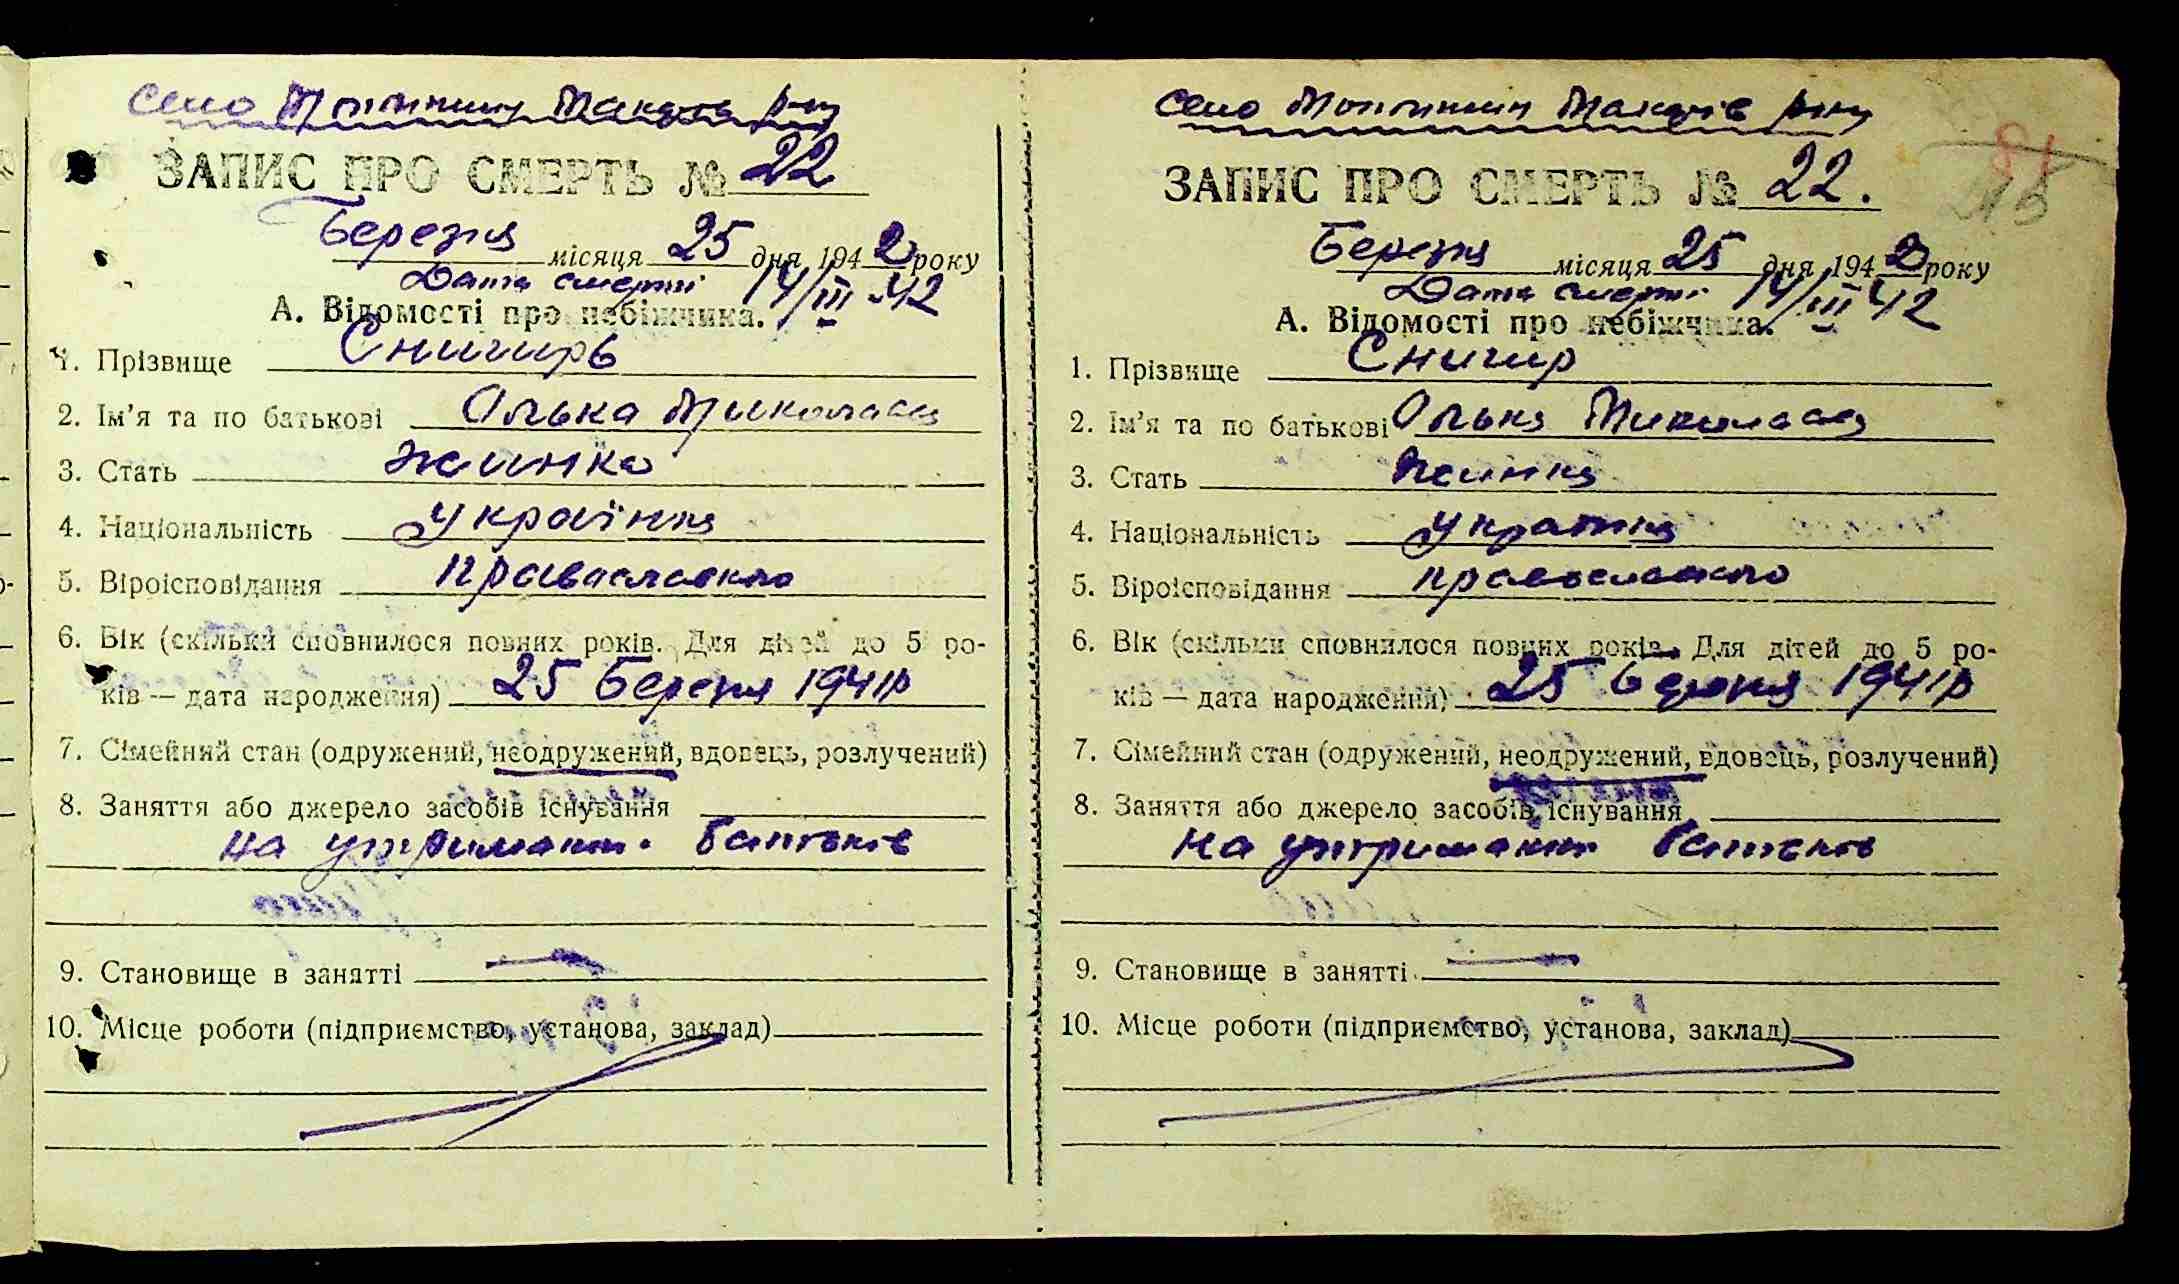 село Мотижин Макарів р-ну
ЗАПИС ПРО СМЕРТЬ № 22
Березня місяця 25 дня 1942 року
Дата смерті 14/III-42
А. Відомості про небіжчика.
1. Прізвище Снигирь
2. Ім’я та по батькові Олька Миколаєв
3. Стать жинка
4. Національність українка
5. Віроісповідання православно
6. Вік (скільки сповнилося повних років. Для дітей до 5 ро-
ків — дата народження) 25 Березня 1941р
7. Сімейний стан (одружений, неодружений, вдовець, розлучений)
8. Заняття або джерело засобів існування
на утриманні батьків
9. Становище в занятті —
10. Місце роботи (підприємство, установа, заклад)
село Мотижин Макарів р-ну
ЗАПИС ПРО СМЕРТЬ № 22.
Березня місяця 25 дня 1942 року
Дата смерті 14/III 42
А. Відомості про небіжчика.
1. Прізвище Снигир
2. Ім’я та по батькові Олька Миколаєв
3. Стать жинка
4. Національність українка
5. Віроісповідання православно
6. Вік (скільки сповнилося повних років. Для дітей до 5 ро-
ків — дата народження) 25 березня 1941р
7. Сімейний стан (одружений, неодружений, вдовець, розлучений)
8. Заняття або джерело засобів існування
на утриманні батьків
9. Становище в занятті —
10. Місце роботи (підприємство, установа, заклад)